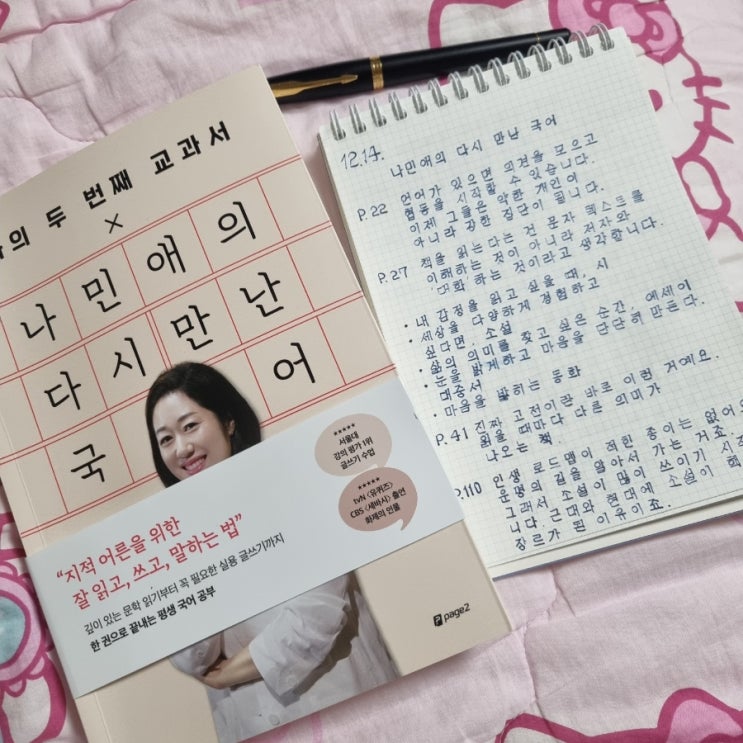 의 두 번째 교과서
×
나민애의
다시 만난
국어
★★★★★
서울대
강의 평가 1위
글쓰기 수업
★★★★★
tvN <유퀴즈>
CBS <세바시> 출연
화제의 인물
“지적 어른을 위한
잘 읽고, 쓰고, 말하는 법”
깊이 있는 문학 읽기부터 꼭 필요한 실용 글쓰기까지
한 권으로 끝내는 평생 국어 공부
page2
12.17.
나민애의 다시 만난 국어
P.22 언어가 있으면 의견을 모으고
협동을 시작할 수 있습니다.
이제 그들은 약한 개인이
아니라 강한 집단이 됩니다.
P.27 책을 읽는다는 건 문자 텍스트를
이해하는 것이 아니라 저자와
대화하는 것이라고 생각합니다.
• 내 감정을 읽고 싶을 때, 시
• 세상을 다양하게 경험하고
싶다면, 소설
• 삶의 의미를 찾고 싶은 순간, 에세이
• 눈을 밝게하고 마음을 단단히 만든다.
대중서
• 마음을 밝히는 동화
P.41 진짜 고전이란 바로 이런 거예요.
읽을 때마다 다른 의미가
나오는 책.
P.110 인생 로드맵이 적힌 종이는 없어요
운명의 길을 알아서 가는 거죠.
그래서 소설이 많이 쓰이기 시
니다. 근대와 현대에 소설이 핵
장르가 된 이유이죠.